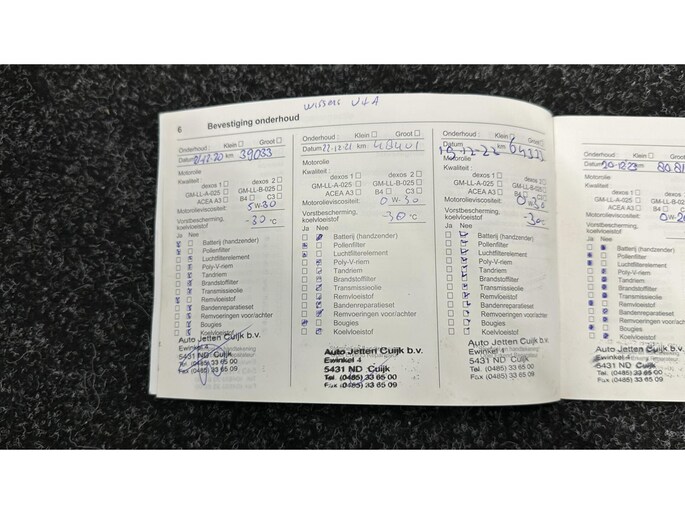 6 Bevestiging onderhoud
Onderhoud : Klein Groot
Datum 12-20 km 39033
Motorolie
Kwaliteit :
dexos 1 dexos 2
GM-LL-A-025 GM-LL-B-025
ACEA A3 B4 C3
Motorolieviscositeit: 5 W-30
Vorstbescherming, koelvloeistof -30 °C
Ja Nee
Batterij (handzender)
Pollenfilter
Luchtfilterelement
Poly-V-riem
Tandriem
Brandstoffilter
Transmissieolie
Remvloeistof
Bandenreparatieset
Remvoeringen voor/achter
Bougies
Koelvloeistof
Auto Jetten Cuijk b.v.
Ewinkel 4
5431 ND Cuijk
Tel. (0485) 33 65 00
Fax (0485) 33 65 09
Onderhoud : Klein Groot
Datum 22-12-21 km 48401
Motorolie
Kwaliteit :
dexos 1 dexos 2
GM-LL-A-025 GM-LL-B-025
ACEA A3 B4 C3
Motorolieviscositeit: 0 W-30
Vorstbescherming, koelvloeistof -30 °C
Ja Nee
Batterij (handzender)
Pollenfilter
Luchtfilterelement
Poly-V-riem
Tandriem
Brandstoffilter
Transmissieolie
Remvloeistof
Bandenreparatieset
Remvoeringen voor/achter
Bougies
Koelvloeistof
Auto Jetten Cuijk b.v.
Ewinkel 4
5431 ND Cuijk
Tel. (0485) 33 65 00
Fax (0485) 33 65 09
Onderhoud : Klein Groot
Datum 19-12-22 km
Motorolie
Kwaliteit :
dexos 1 dexos 2
GM-LL-A-025 GM-LL-B-025
ACEA A3 B4 C3
Motorolieviscositeit: 0 W-30
Vorstbescherming, koelvloeistof -30
Ja Nee
Batterij (handzender)
Pollenfilter
Luchtfilterelement
Poly-V-riem
Tandriem
Brandstoffilter
Transmissieolie
Remvloeistof
Bandenreparatieset
Remvoeringen voor/achter
Bougies
Koelvloeistof
Auto Jetten Cuijk b.v.
Ewinkel 4
5431 ND Cuijk
Tel. (0485) 33 65 00
Fax (0485) 33 65 09
Onderhoud : Klein
Datum 20-12-23 km
Motorolie
Kwaliteit :
dexos 1
GM-LL-A-025 GM-LL-B
ACEA A3 B4
Motorolieviscositeit: 0W-20
Vorstbescherming, koelvloeistof
Ja Nee
Batterij (handzender)
Pollenfilter
Luchtfilterelement
Poly-V-riem
Tandriem
Brandstoffilter
Transmissieolie
Remvloeistof
Bandenreparatieset
Remvoeringen voor
Bougies
Koelvloeistof
Auto Jetten Cuijk b.v.
Ewinkel 4
5431 ND Cuijk
Tel. (0485) 33 65 00
Fax (0485) 33 65 09